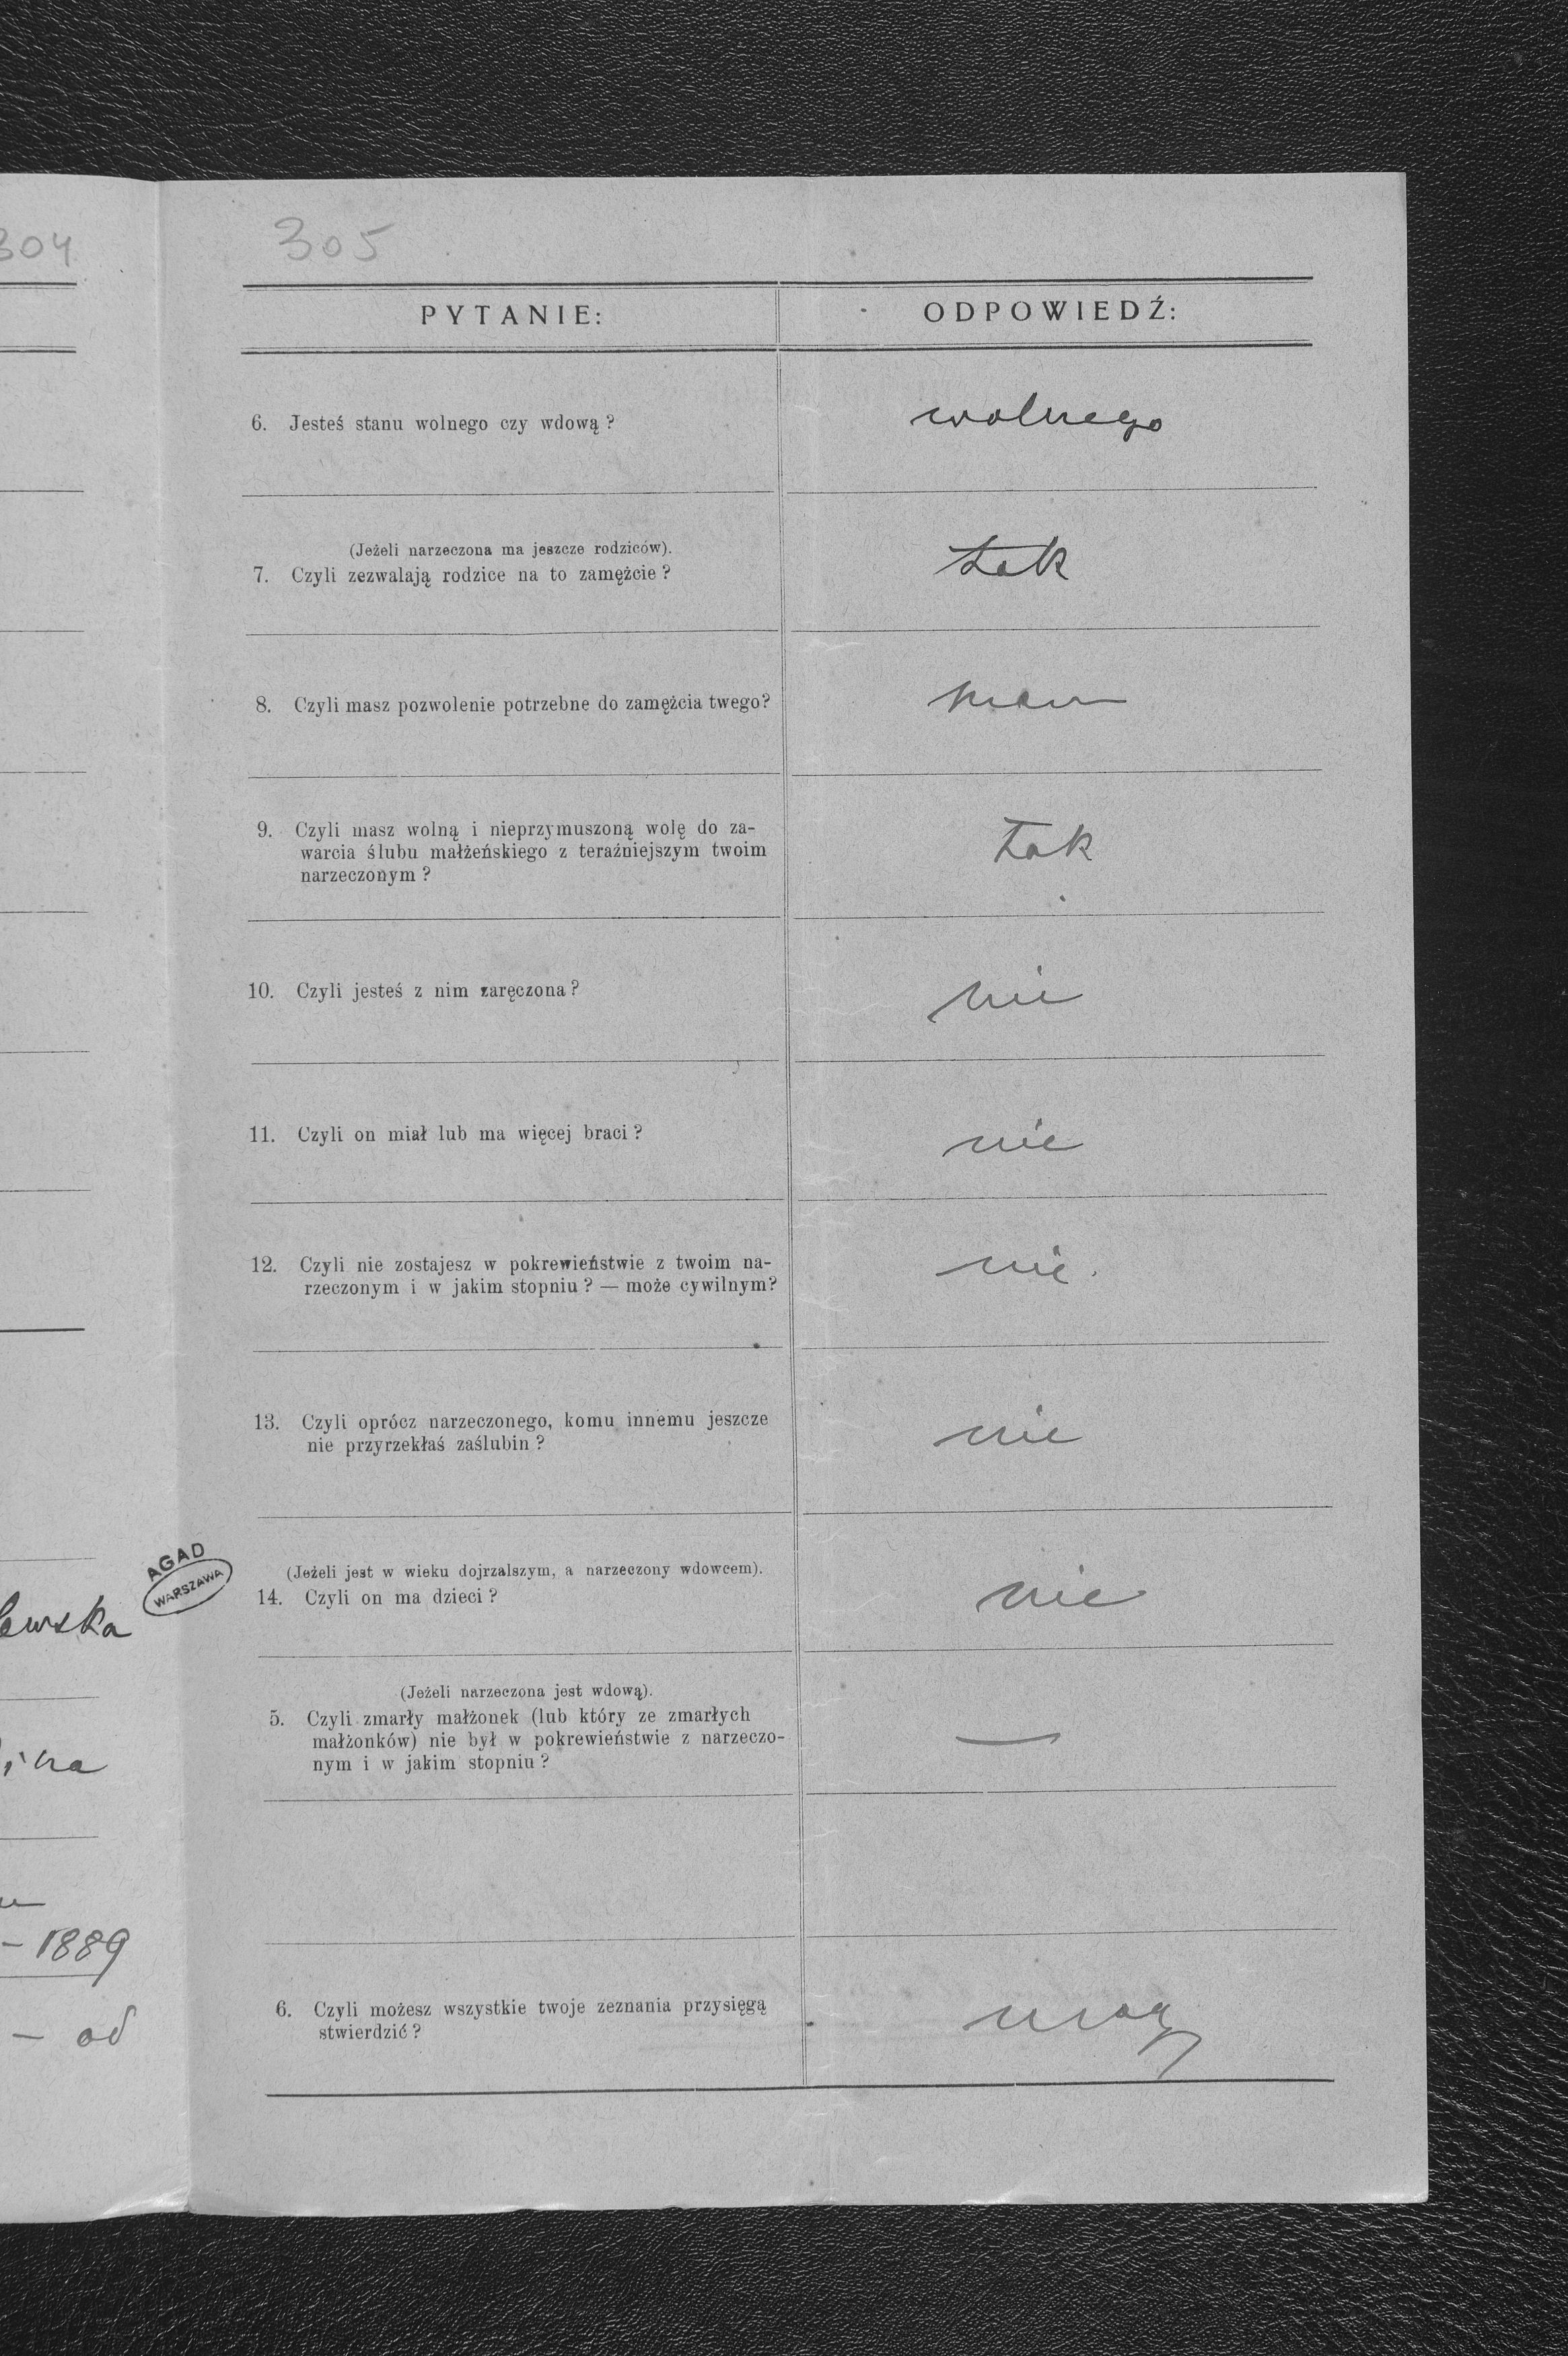 304
305
PYTANIE:
ODPOWIEDŹ:
6. Jesteś stanu wolnego czy wdową?
wolnego
(Jeżeli narzeczona ma jeszcze rodziców).
7. Czyli zezwalają rodzice na to zamężcie?
tak
8. Czyli masz pozwolenie potrzebne do zamężcia twego?
mam
9. Czyli masz wolną i nieprzymuszoną wolę do za-
warcia ślubu małżeńskiego z teraźniejszym twoim
narzeczonym?
tak
10. Czyli jesteś z nim zaręczona?
nie
11. Czyli on miał lub ma więcej braci?
nie
12. Czyli nie zostajesz w pokrewieństwie z twoim na-
rzeczonym i w jakim stopniu? — może cywilnym?
nie.
13. Czyli oprócz narzeczonego, komu innemu jeszcze
nie przyrzekłaś zaślubin?
nie
(Jeżeli jest w wieku dojrzalszym, a narzeczony wdowcem).
14. Czyli on ma dzieci?
nie
(Jeżeli narzeczona jest wdową).
5. Czyli zmarły małżonek (lub który ze zmarłych
małżonków) nie był w pokrewieństwie z narzeczo-
nym i w jakim stopniu?
—
6. Czyli możesz wszystkie twoje zeznania przysięgą
stwierdzić?
mogę
AGAD
WARSZAWA
lewska
ina
- 1889
- od